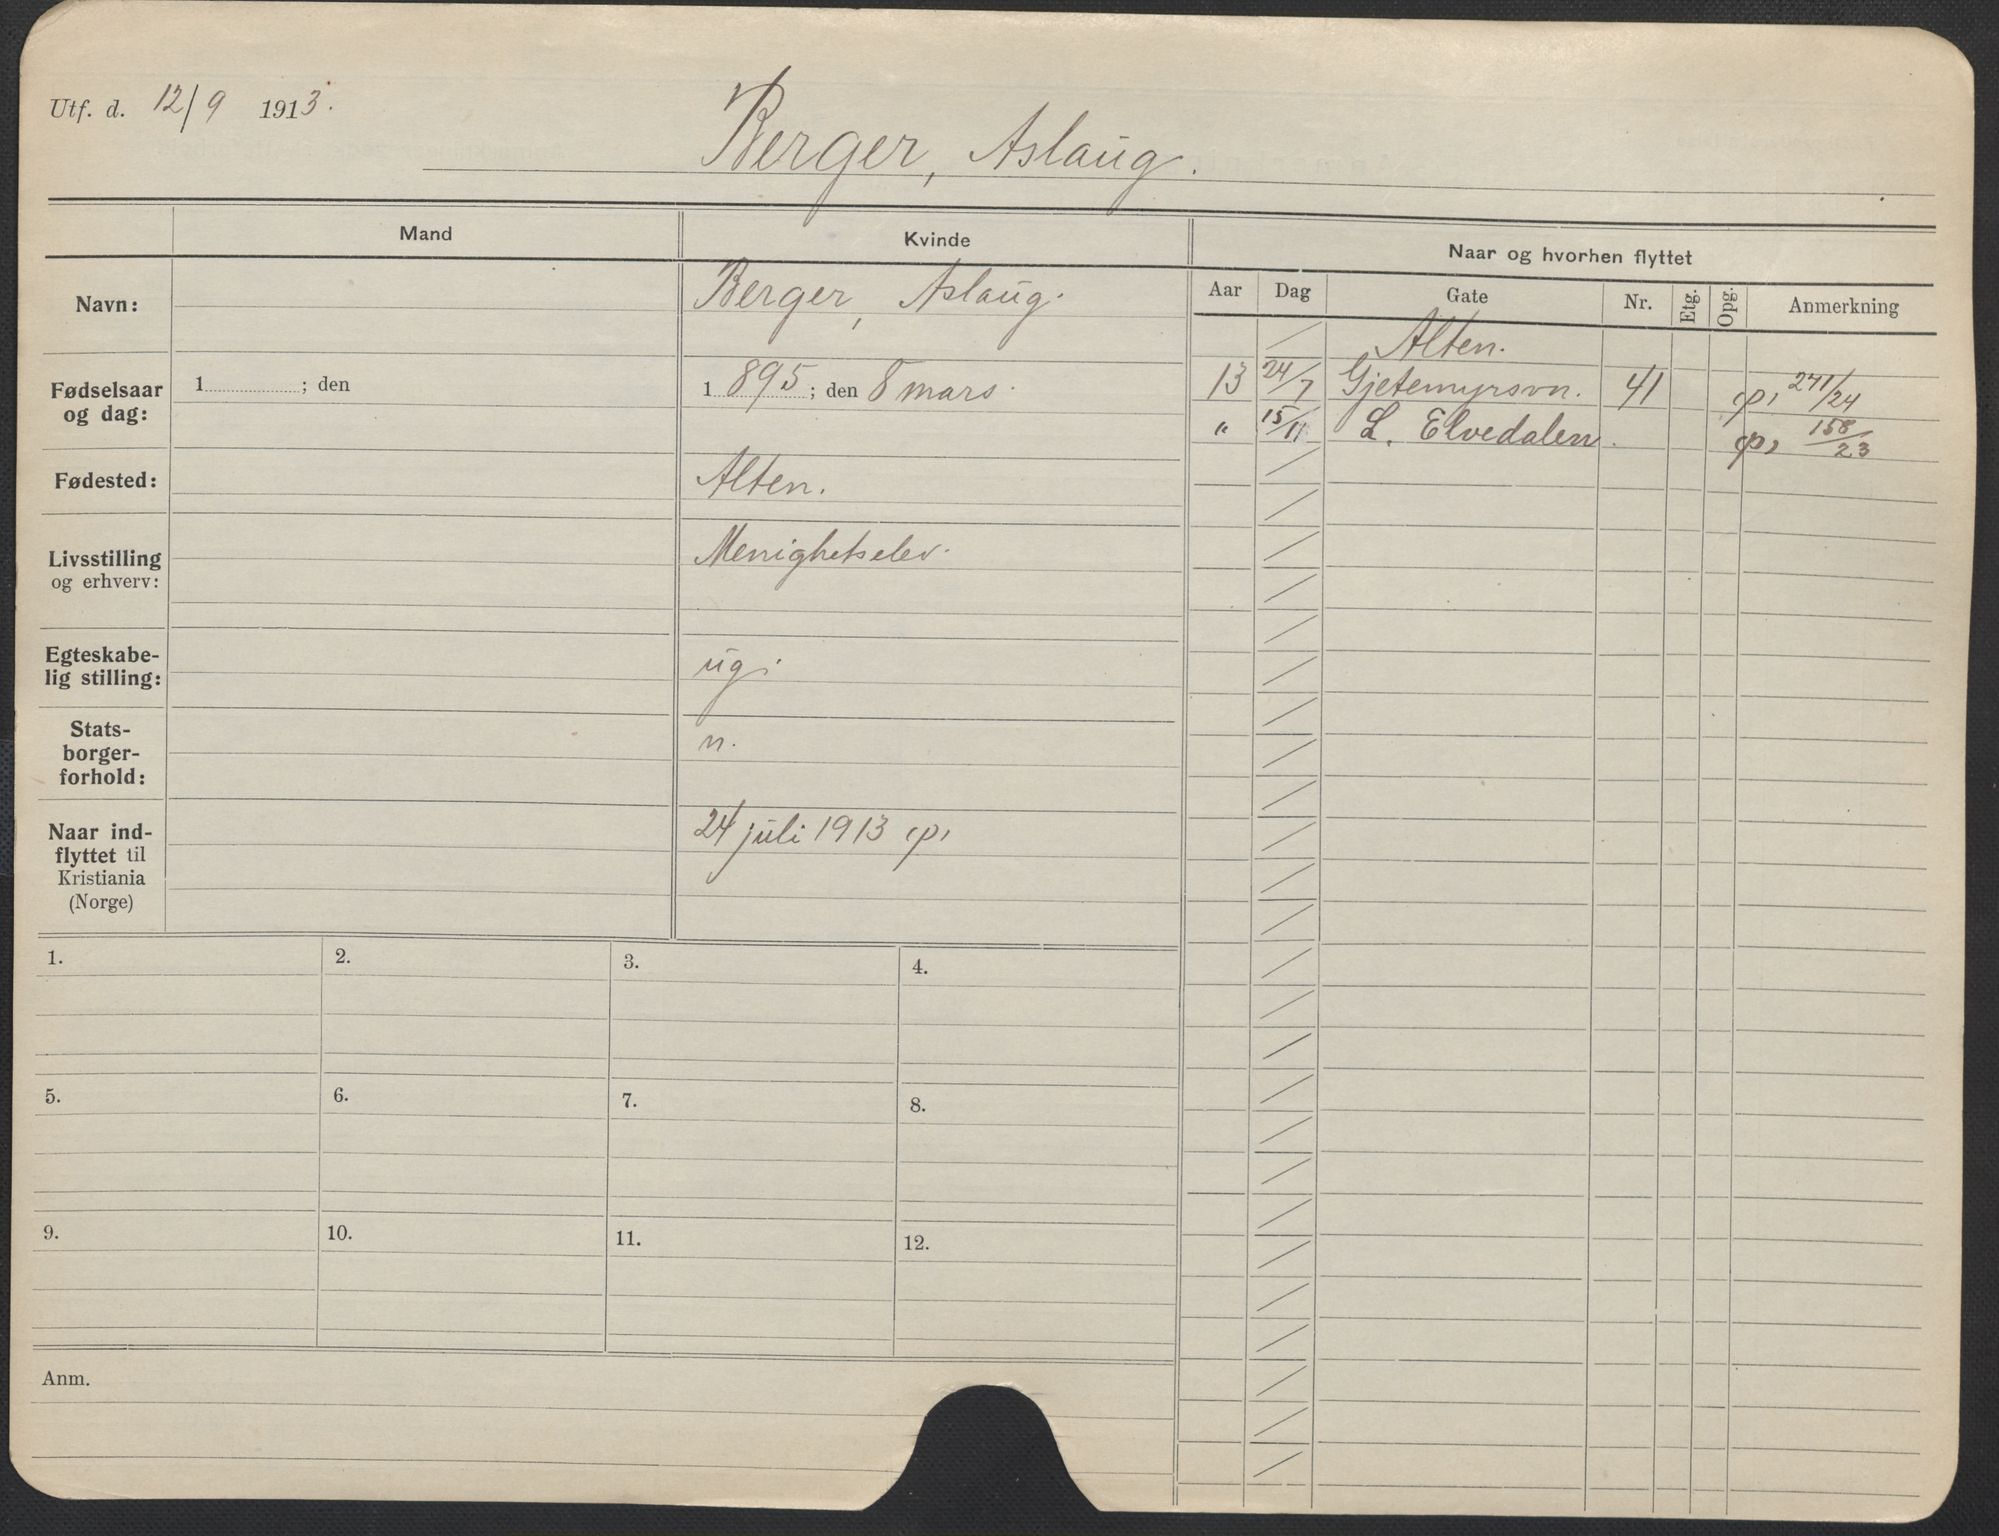 Utf. d. 12/9 1913.
Berger, Aslaug.
Mand
Kvinde
Naar og hvorhen flyttet
Aar Dag Gate Nr. Etg. Opg. Anmerkning
Navn:
Berger, Aslaug.
Fødselsaar
og dag:
1 ; den
1 895 ; den 8 mars.
Fødested:
Alten.
Livsstilling
og erhverv:
Menighetselev.
Egteskabe-
lig stilling:
ug.
Stats-
borger-
forhold:
n.
Naar ind-
flyttet til
Kristiania
(Norge)
24 juli 1913 p,
Alten.
13 24/7 Gjetemyrsvn. 41 p, 241/24
" 15/11 L. Elvedalen. p, 158/23
1. 2. 3. 4.
5. 6. 7. 8.
9. 10. 11. 12.
Anm.